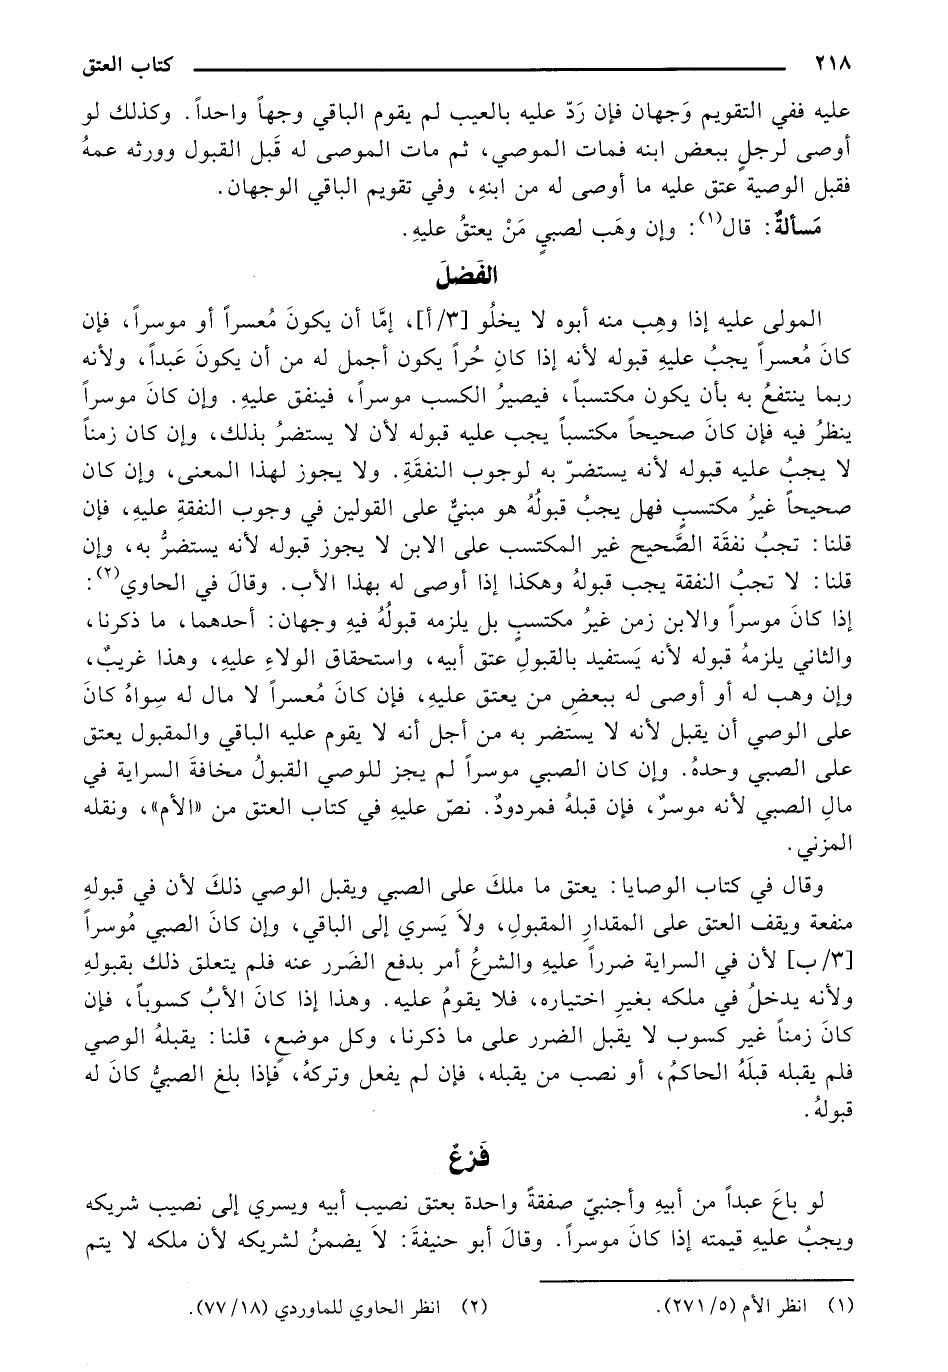 ٢١٨ كتاب العتق
عليه ففي التقويم وَجهان فإن رَدّ عليه بالعيب لم يقوم الباقي وجهاً واحداً. وكذلك لو
أوصى لرجلٍ ببعض ابنه فمات الموصي، ثم مات الموصى له قَبل القبول وورثه عمهُ
فقبل الوصية عتق عليه ما أوصى له من ابنهِ، وفي تقويم الباقي الوجهان.
مَسألةٌ: قال(١): وإن وهَب لصبيٍ مَنْ يعتقُ عليهِ.
الفَصْلَ
المولى عليه إذا وهِب منه أبوه لا يخلُو [٣/أ]، إمَّا أن يكونَ مُعسراً أو موسراً، فإن
كانَ مُعسراً يجبُ عليهِ قبوله لأنه إذا كان حُراً يكون أجمل له من أن يكونَ عَبداً، ولأنه
ربما ينتفعُ به بأن يكون مكتسباً، فيصيرُ الكسب موسراً، فينفق عليهِ. وإن كانَ موسراً
ينظرُ فيه فإن كانَ صحيحاً مكتسباً يجب عليه قبوله لأن لا يستضرُ بذلك، وإن كان زمناً
لا يجبُ عليه قبوله لأنه يستضرّ به لوجوب النفقَةِ. ولا يجوز لهذا المعنى، وإن كان
صحيحاً غيرُ مكتسبٍ فهل يجبُ قبولُهُ هو مبنيٌّ على القولين في وجوب النفقةِ عليهِ، فإن
قلنا: تجبُ نفقَة الصَّحيح غير المكتسب على الابن لا يجوز قبوله لأنه يستضرُّ به، وإن
قلنا: لا تجبُ النفقة يجب قبولهُ وهكذا إذا أوصى له بهذا الأب. وقالَ في الحاوي(٢):
إذا كانَ موسراً والابن زمن غيرُ مكتسبٍ بل يلزمه قبولُهُ فيهِ وجهان: أحدهما، ما ذكرنا،
والثاني يلزمهُ قبوله لأنه يَستفيد بالقبولِ عتق أبيه، واستحقاق الولاءِ عليهِ، وهذا غريبٌ،
وإن وهب له أو أوصى له ببعضِ من يعتق عليهِ، فإن كانَ مُعسراً لا مال له سِواهُ كانَ
على الوصي أن يقبل لأنه لا يستضر به من أجل أنه لا يقوم عليه الباقي والمقبول يعتق
على الصبي وحدهُ. وإن كان الصبي موسراً لم يجز للوصي القبولُ مخافةَ السراية في
مالِ الصبي لأنه موسرٌ، فإن قبلهُ فمردودٌ. نصّ عليهِ في كتاب العتق من «الأم»، ونقله
المزني.
وقال في كتاب الوصايا: يعتق ما ملكَ على الصبي ويقبل الوصي ذلكَ لأن في قبولهِ
منفعة ويقف العتق على المقدارِ المقبولِ، ولاَ يَسري إلى الباقي، وإن كانَ الصبي مُوسراً
[٣/ب] لأن في السراية ضرراً عليهِ والشرعُ أمر بدفع الضَرر عنه فلم يتعلق ذلك بقبولهِ
ولأنه يدخلُ في ملكه بغيرِ اختياره، فلا يقومُ عليه. وهذا إذا كانَ الأبُ كسوباً، فإن
كانَ زمناً غير كسوب لا يقبل الضرر على ما ذكرنا، وكل موضعٍ، قلنا: يقبلهُ الوصي
فلم يقبله قبلَهُ الحاكمُ، أو نصب من يقبله، فإن لم يفعل وتركهُ، فإذا بلغ الصبيُّ كانَ له
قبولهُ.
فَرْعٌ
لو باعَ عبداً من أبيهِ وأجنبيّ صفقةً واحدة بعتق نصيب أبيه ويسري إلى نصيب شريكه
ويجبُ عليهِ قيمته إذا كانَ موسراً. وقالَ أبو حنيفةَ: لاَ يضمنُ لشريكه لأن ملكه لا يتم
(١) انظر الأم (٢٧١/٥).
(٢) انظر الحاوي للماوردي (٧٧/١٨).